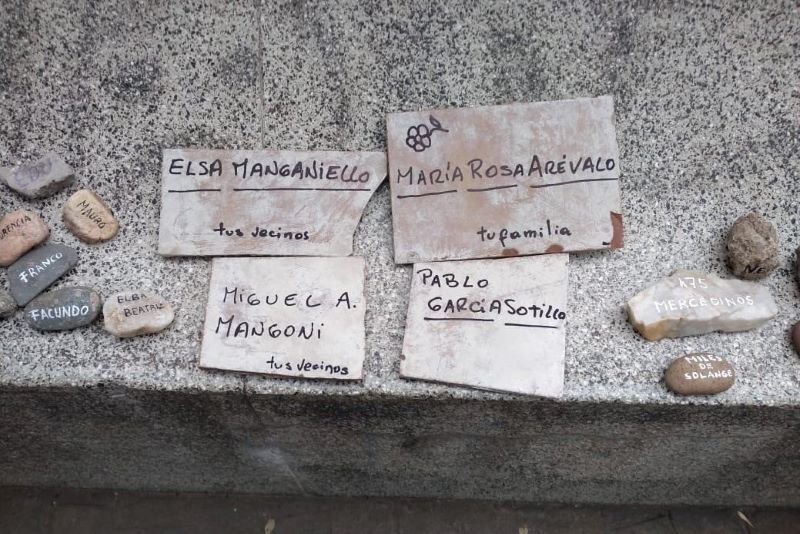 ELSA MANGANIELLO
tus vecinos
MARÍA ROSA ARÉVALO
tu familia
MIGUEL A.
MANGONI
tus vecinos
PABLO
GARCÍA SOTILLO
MAURO
FRANCO
FACUNDO
ELBA
BEATRIZ
175
MERCEDINOS
MILES
DE
SOLANGE